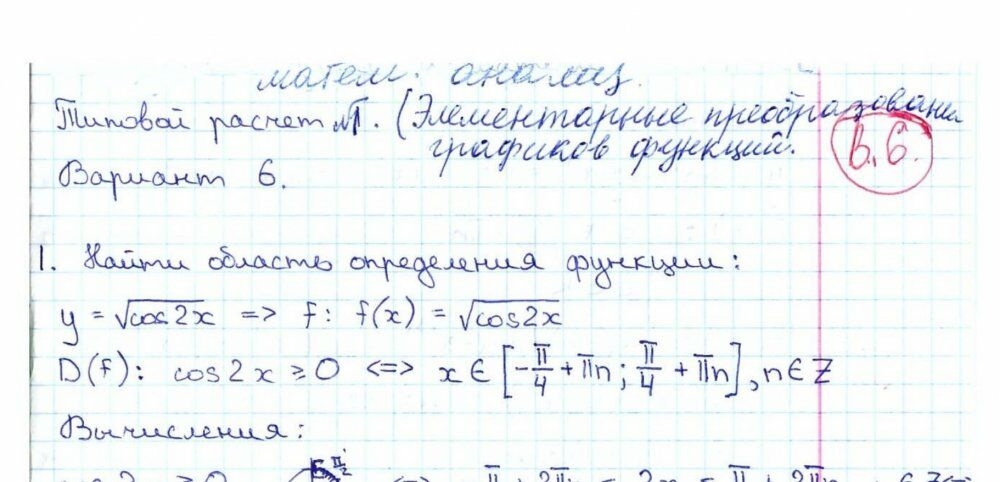 матем. анализ.
Типовой расчет №1. (Элементарные преобразования
графиков функций.
В. 6.
Вариант 6.
1. Найти область определения функции:
y = √cos2x => f: f(x) = √cos2x
D(f): cos2x ≥ 0 <=> x ∈ [-π/4 + πn; π/4 + πn], n ∈ Z
Вычисления: